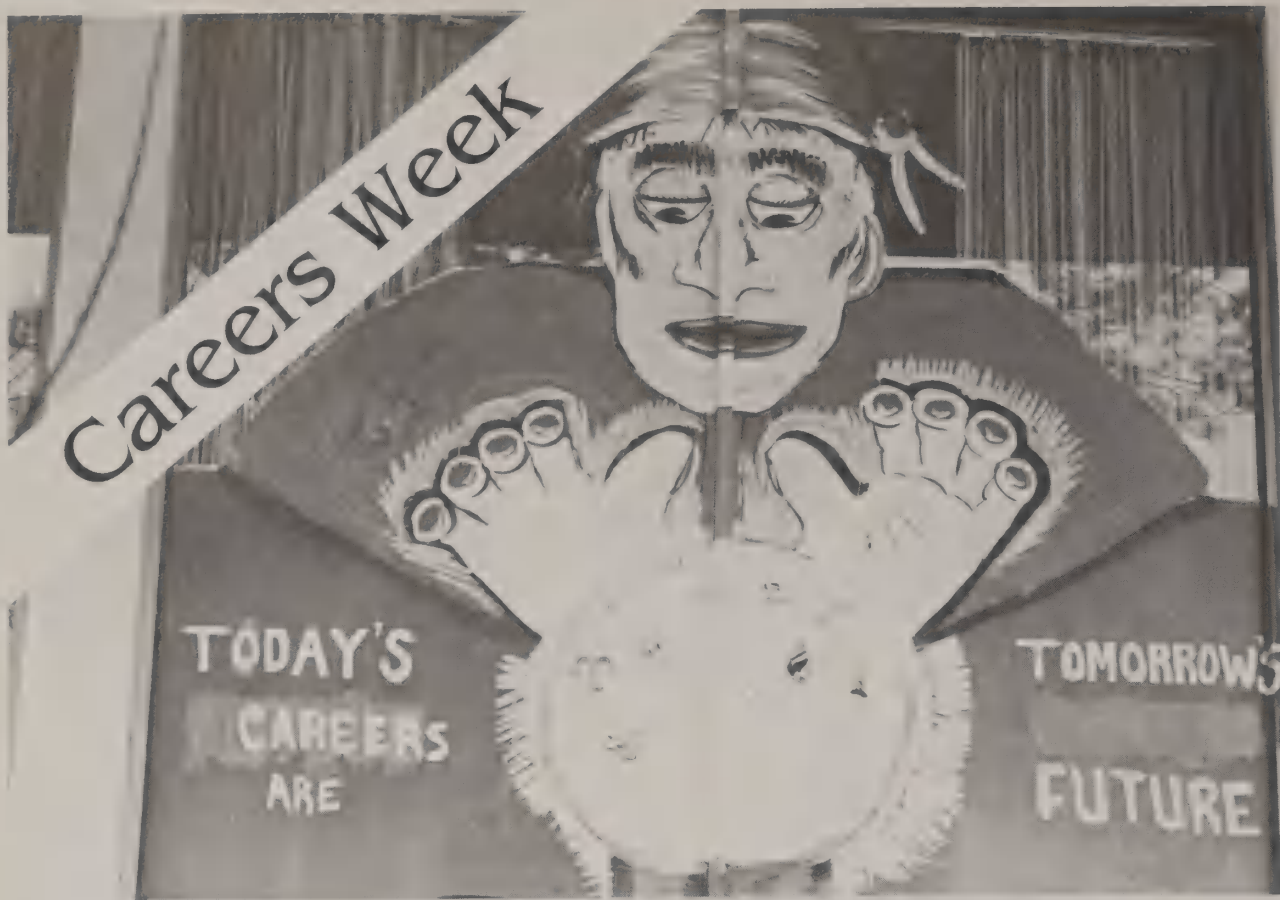 Careers Week
TODAY'S
CAREERS
ARE
TOMORROW'S
FUTURE